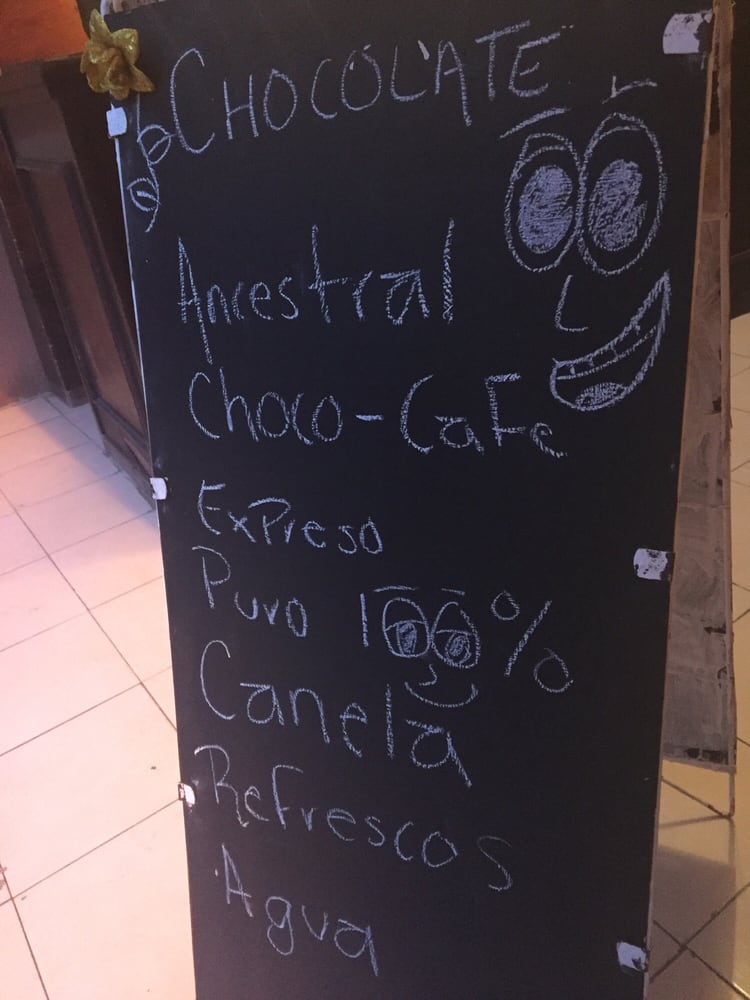 CHOCOLATE
Ancestral
Choco-CaFe
ExPreso
Puro 100%
Canela
ReFrescos
Agua